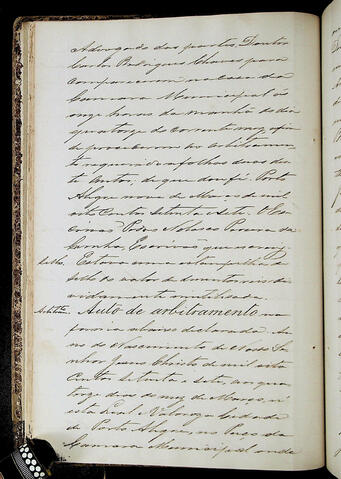 Advogado das partes Doutor
Carlos Rodrigues Chaves para
comparecerem na casa da
Camara Municipal as
onze horas da manhã do dia
quatorze do corrente mez, afim
de procederem ao arbitramen
to requerido a folhas duas des
te autos; de que dou fé. Porto
Alegre nove de Março de mil
oito centos setenta e sete. O Es
crivão Pedro Nolasco Pereira da
Cunha, Escrivão que escrevy
Sello. Estava uma estampilha de
sello do valor de duzentos reis de
vidamente inutilisada.
Auto de arbitramento na
forma abaixo declarada. An
no do Nascimento de Nosso Se
nhor Jesus Christo de mil oito
centos setenta e sete, aos qua
torze dias do mez de Março, n'
esta Leal e Valorosa Cidade
de Porto Alegre, no Paço da
Camara Municipal onde